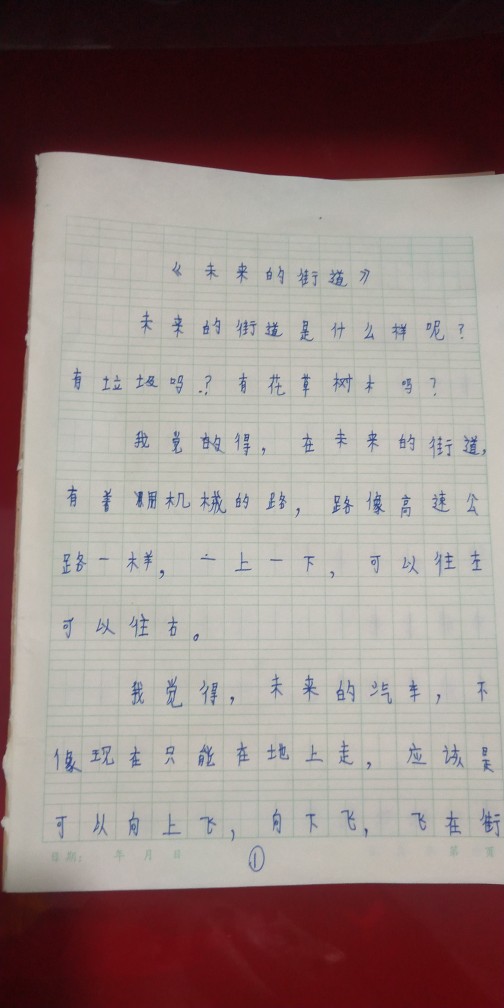 《未来的街道》
未来的街道是什么样呢?
有垃圾吗?有花草树木吗?
我觉得,在未来的街道,
有着用机械的路,路像高速公
路一样,一上一下,可以往左
可以往右。
我觉得,未来的汽车,不
像现在只能在地上走,应该是
可以向上飞,向下飞,飞在街
日期: 年 月 日 ① 第 页